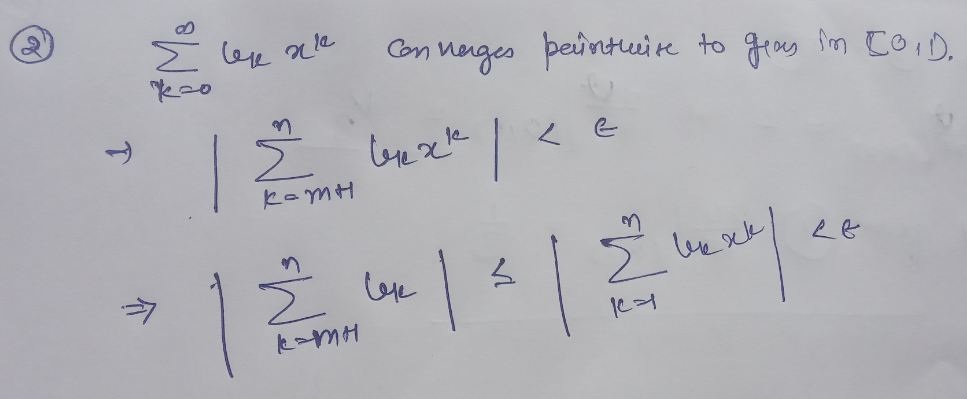 ② ∞ ∑ k=0 b_k x^k Converges pointwise to g(x) in [0,1).
→ | n ∑ k=m+1 b_k x^k | < ε
⇒ | n ∑ k=m+1 b_k | ≤ | n ∑ k=1 b_k x^k | < ε